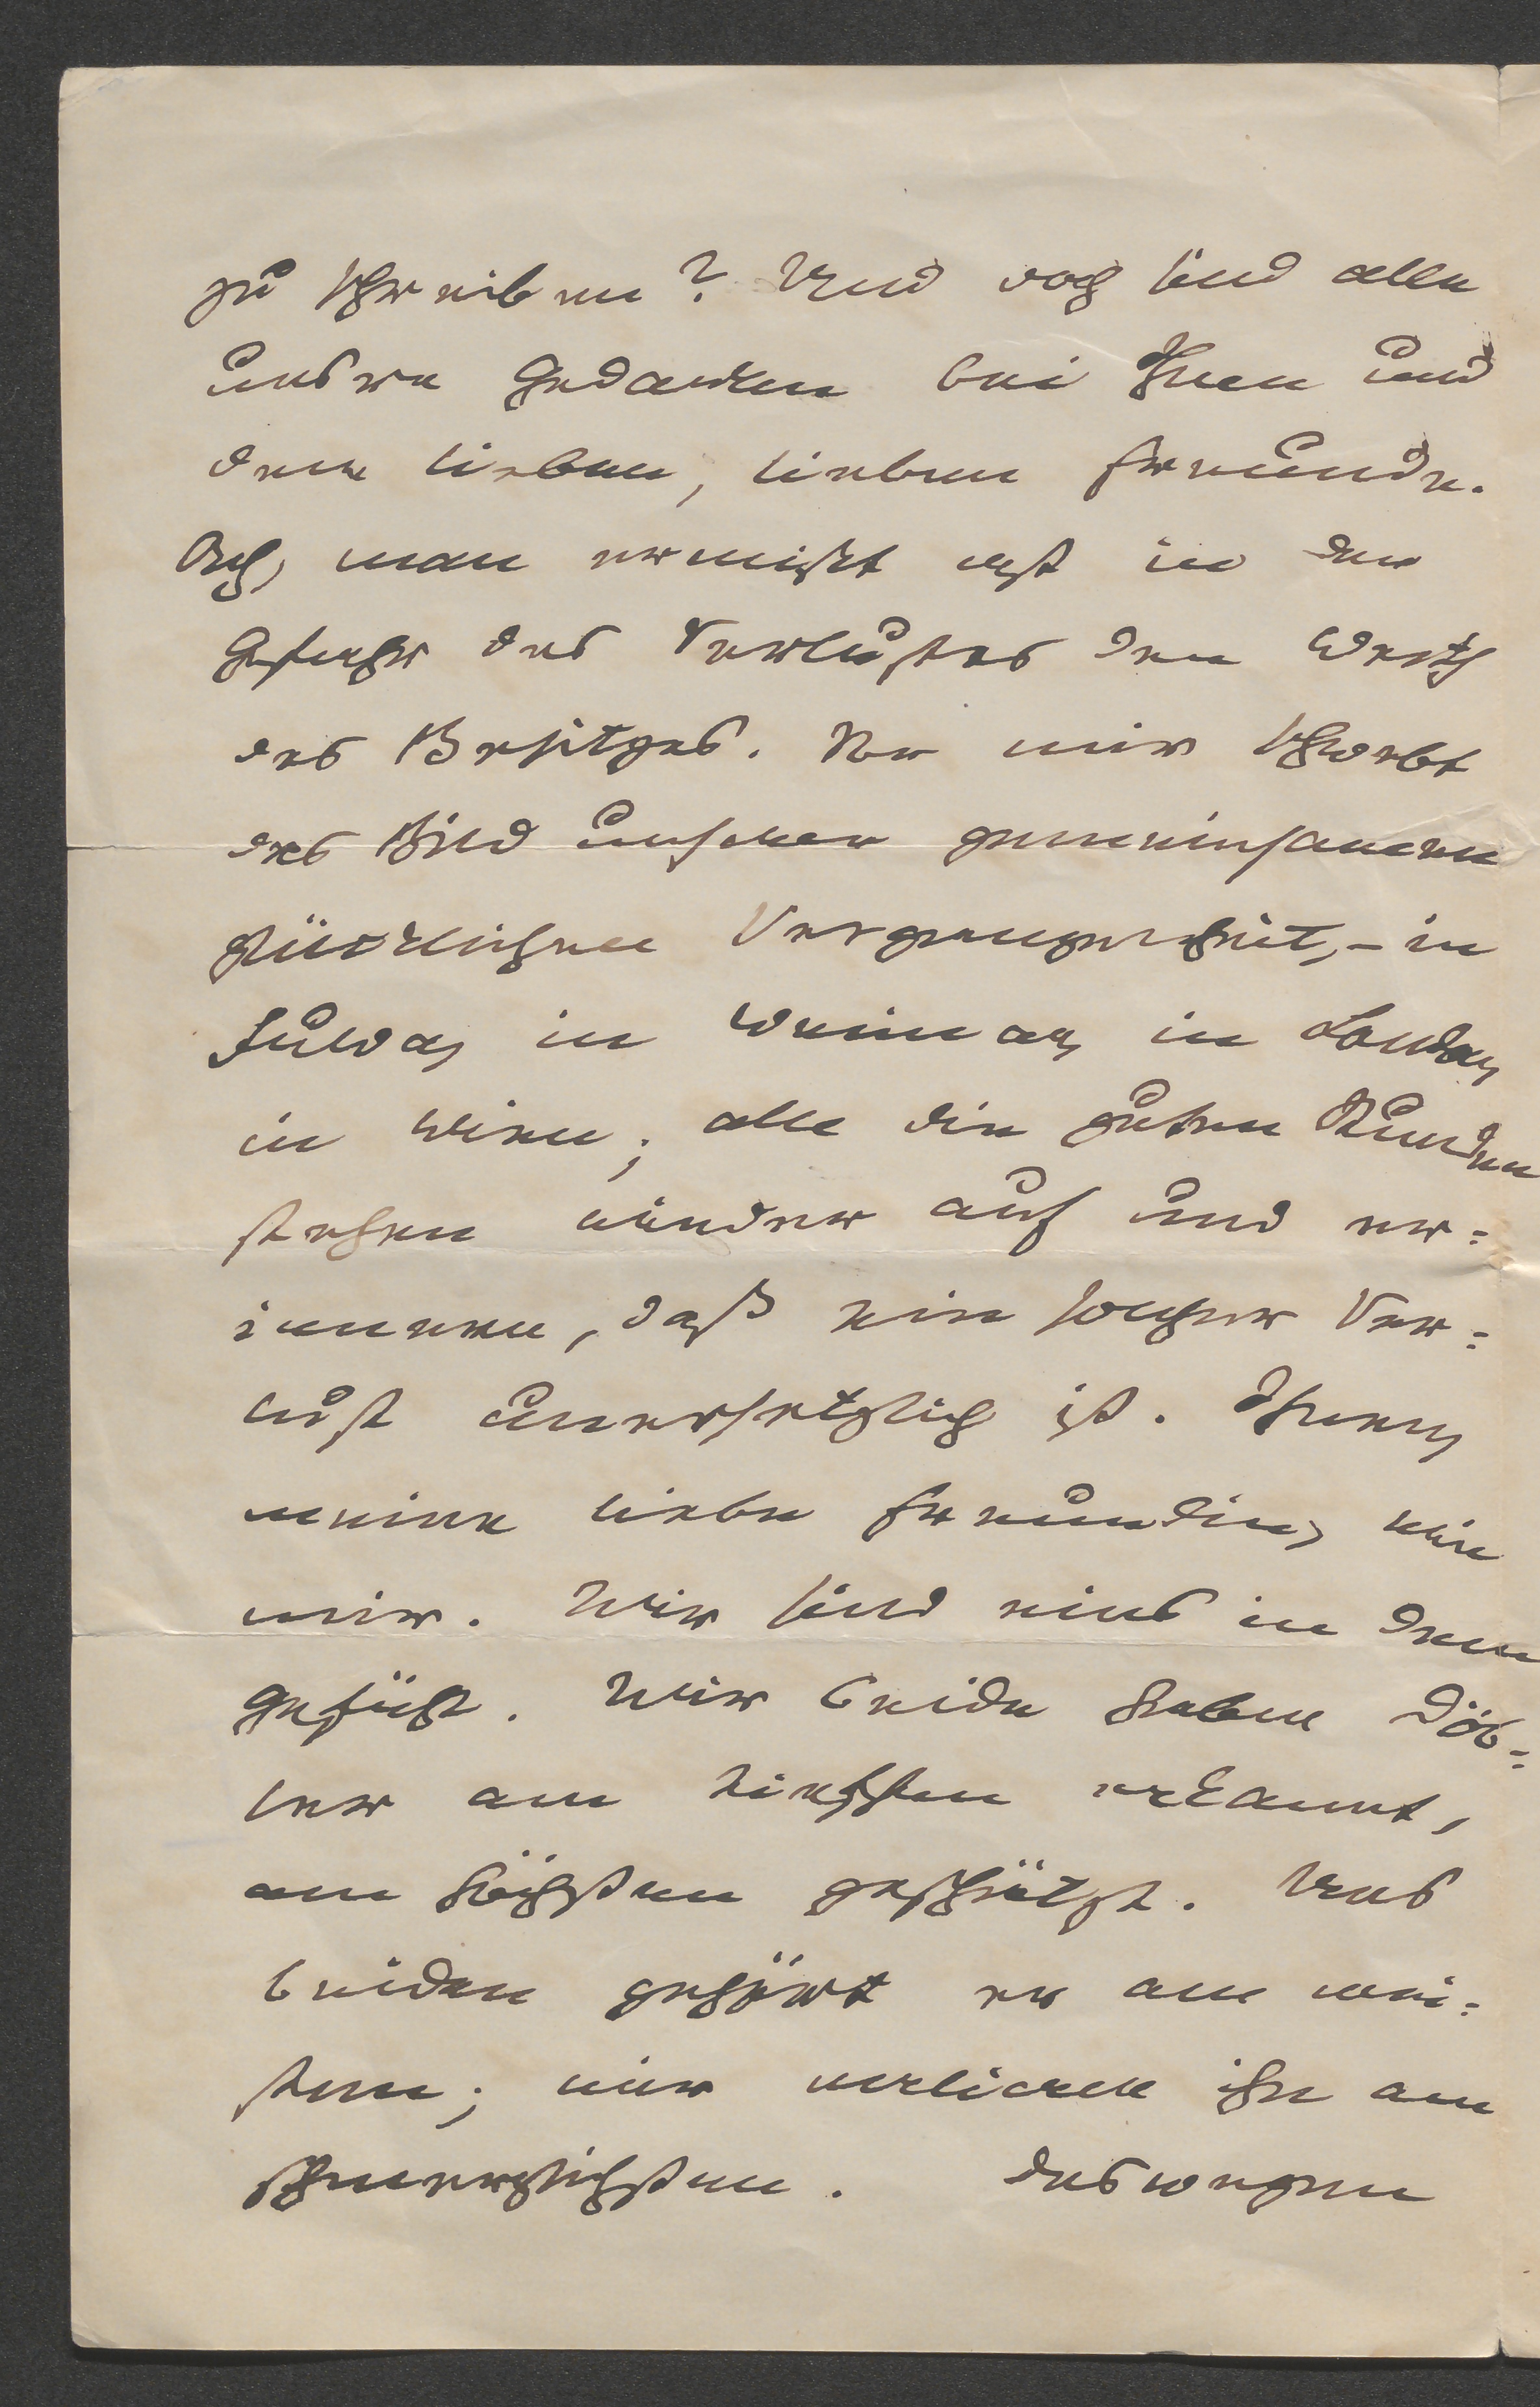 zu schreiben? Und doch sind alle
unsre Gedanken bei Ihnen und
dem lieben, lieben Freunde.
Ach, man ermißt erst in der
Gefahr des Verlustes den Werth
des Besitzes. Vor mir schwebt
das Bild unserer gemeinsamen
glücklichen Vergangenheit, – in
Fulda, in Weimar, in London,
in Wien; alle die guten Stunden
stehen wieder auf und er=
innern, daß ein solcher Ver=
lust unersetzlich ist. Ihnen,
meine liebe Freundin, wie
mir. Wir sind eins in dem
Gefühl. Wir beide haben Döb=
ler am tiefsten erkannt,
am höchsten geschätzt. Uns
beiden gehört er am mei=
sten; wir verlieren ihn am
schmerzlichsten. Deswegen